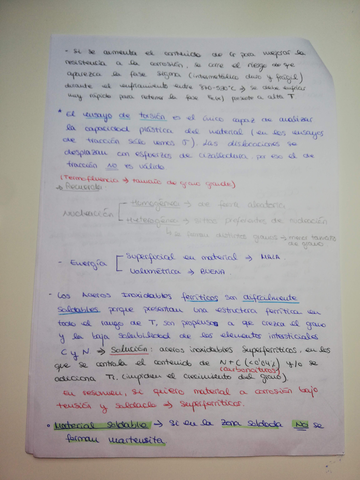 - Si se aumenta el contenido de Cr para mejorar la
resistencia a la corrosión, se corre el riesgo de que
aparezca la fase sigma (intermetálico duro y frágil)
durante el enfriamiento entre °C → se debe enfriar
muy rápido para retener la fase presente a alta T
* El ensayo de torsión es el único capaz de analizar
la capacidad plástica del material (en los ensayos
de tracción solo vemos σ). Las dislocaciones se
desplazan con esfuerzos de cizalladura por eso el de
tracción NO es válido
(Termofluencia → tamaño de grano grande)
→ Recuerdo
Nucleación Homogénea → de forma aleatoria
Heterogénea → sitios preferentes de nucleación
↳ se forman distintos granos → menor tamaño
de grano
- Energía Superficial en material → MALA
Volumétrica → BUENA
- Los Aceros Inoxidables ferríticos son difícilmente
soldables porque presentan una estructura ferrítica en
todo el rango de T, son propensos a que crezca el grano
y la baja solubilidad de los elementos intersticiales
C y N → Solución: aceros inoxidables superferríticos, en los
que se controla el contenido de N+C (<0'04%) y/o se
adiciona Ti, (carbonitruros impiden el crecimiento del grano)
en resumen, si quiero material a corrosión bajo
tensión y soldado → superferríticos.
• Material soldable → si en la zona soldada NO se
forman martensita